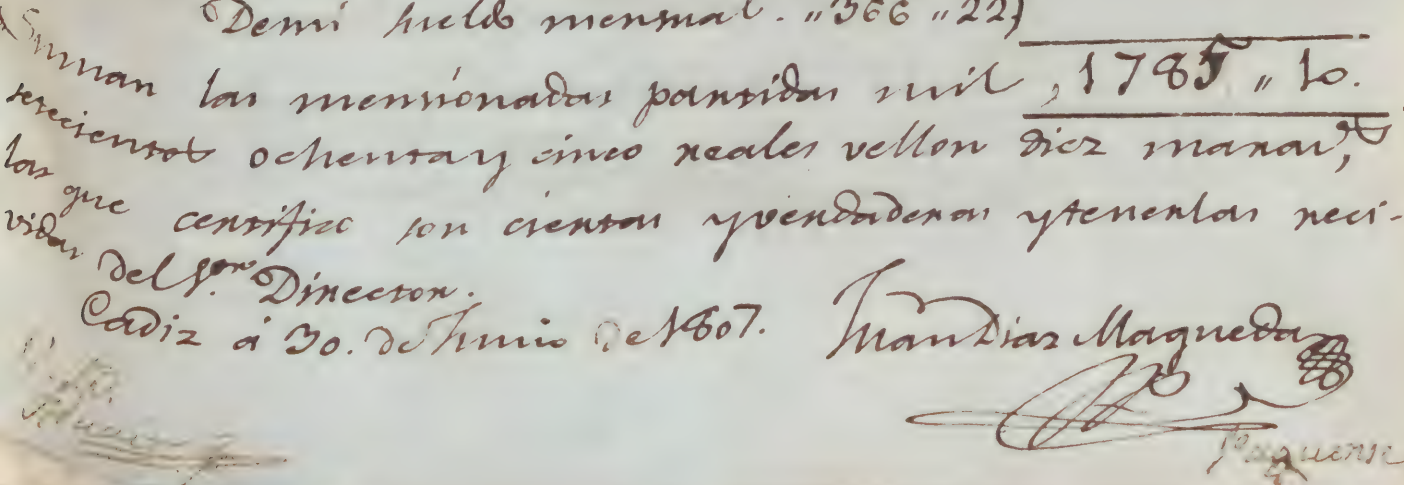 Demi sueldo mensual. "366 "22}
Suman las mensionadas partidas mil , 1785 " 10.
setecientos ochenta y cinco reales vellon diez marav,s
las que certifico son ciertas y verdaderas y tenerlas reci-
vidas del S.or Director.
Cadiz á 30. de Junio de 1807. Juan Diaz Maqueda
Paguense